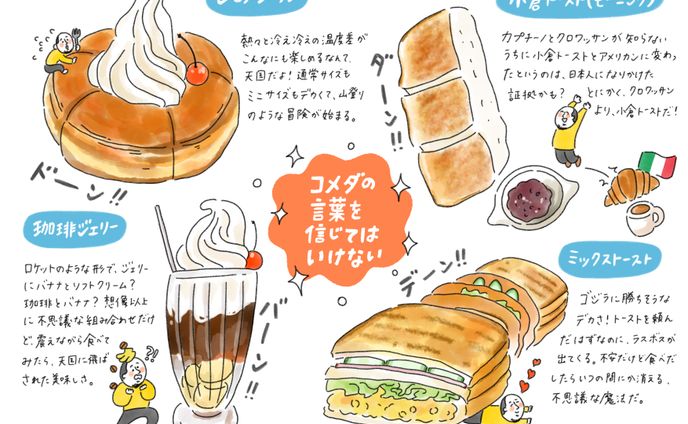 熱々と冷え冷えの温度差が
こんなにも楽しめるなんて、
天国だよ！通常サイズも
ミニサイズもデカくて、山登り
のような冒険が始まる。
ドーン!!
小倉トースト(モーニング)
カプチーノとクロワッサンが知らない
うちに小倉トーストとアメリカンに変わっ
たというのは、日本人になりかけた
証拠かも？ とにかく、クロワッサン
より、小倉トーストだ！
ダーン!!
コメダの
言葉を
信じては
いけない
珈琲ジェリー
ロケットのような形で、ジェリー
にバナナとソフトクリーム？
珈琲とバナナ？想像以上
に不思議な組み合わせだけ
ど、震えながら食べて
みたら、天国に飛ば
された美味しさ。
?!
バーン!!
ミックストースト
ゴジラに勝ちそうな
デカさ！トーストを頼ん
だはずなのに、ラスボスが
出てくる。不安だけど食べだ
したらいつの間にか消える、
不思議な魔法だ。
デーン!!